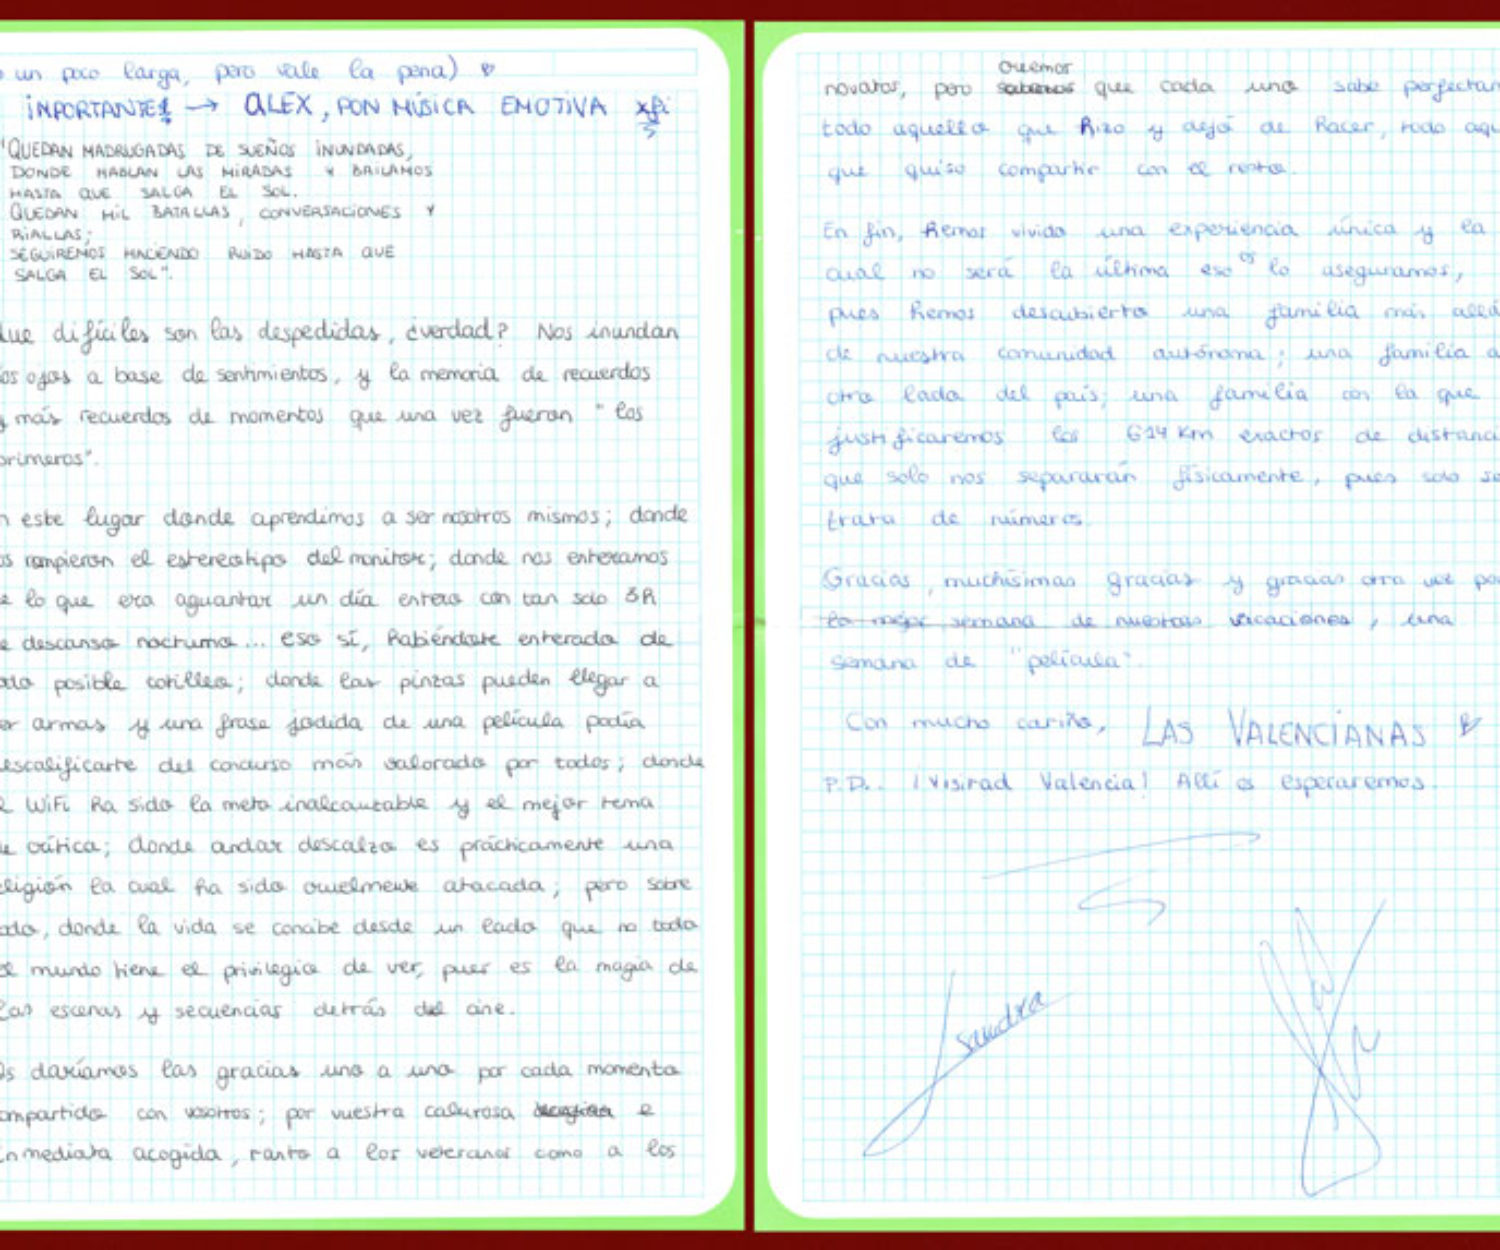 un poco larga, pero vale la pena)
IMPORTANTE! → ALEX, PON MÚSICA EMOTIVA xfi
"QUEDAN MADRUGADAS DE SUEÑOS INUNDADAS,
DONDE HABLAN LAS MIRADAS Y BAILAMOS
HASTA QUE SALGA EL SOL.
QUEDAN MIL BATALLAS, CONVERSACIONES Y
RIALLAS;
SEGUIREMOS HACIENDO RUIDO HASTA QUE
SALGA EL SOL".
ue difíciles son las despedidas, ¿verdad? Nos inundan
os ojos a base de sentimientos, y la memoria de recuerdos
y más recuerdos de momentos que una vez fueron "los
primeros".
n este lugar donde aprendimos a ser nosotros mismos; donde
os rompieron el estereotipo del monitor; donde nos enteramos
e lo que era aguantar un día entero con tan solo 3h
e descanso nocturno... eso sí, habiéndote enterado de
odo posible cotilleo; donde las pinzas pueden llegar a
er armas y una frase jodida de una película podía
escalificarte del concurso más valorado por todos; donde
l WiFi ha sido la meta inalcanzable y el mejor tema
de crítica; donde andar descalzo es prácticamente una
eligión la cual ha sido cruelmente atacada; pero sobre
odo, donde la vida se concibe desde un lado que no todo
el mundo tiene el privilegio de ver, pues es la magia de
las escenas y secuencias detrás del cine.
Os daríamos las gracias uno a uno por cada momento
ompartido con vosotros; por vuestra calurosa e
inmediata acogida, tanto a los veteranos como a los
creemos
novatos, pero sabemos que cada uno sabe perfectam
todo aquello que hizo y dejó de hacer, todo aqu
que quiso compartir con el resto.
En fin, hemos vivido una experiencia única y la
cual no será la última eso os lo aseguramos,
pues hemos descubierto una familia más allá
de nuestra comunidad autónoma; una familia a
otro lado del país; una familia con la que
justificaremos los 614 Km exactos de distanci
que solo nos separarán físicamente, pues solo se
trata de números.
Gracias, muchísimas gracias y gracias otra vez po
la mejor semana de nuestras vacaciones, una
semana de "película".
Con mucho cariño, LAS VALENCIANAS
P.D.: ¡Visitad Valencia! Allí os esperaremos.
Sandra